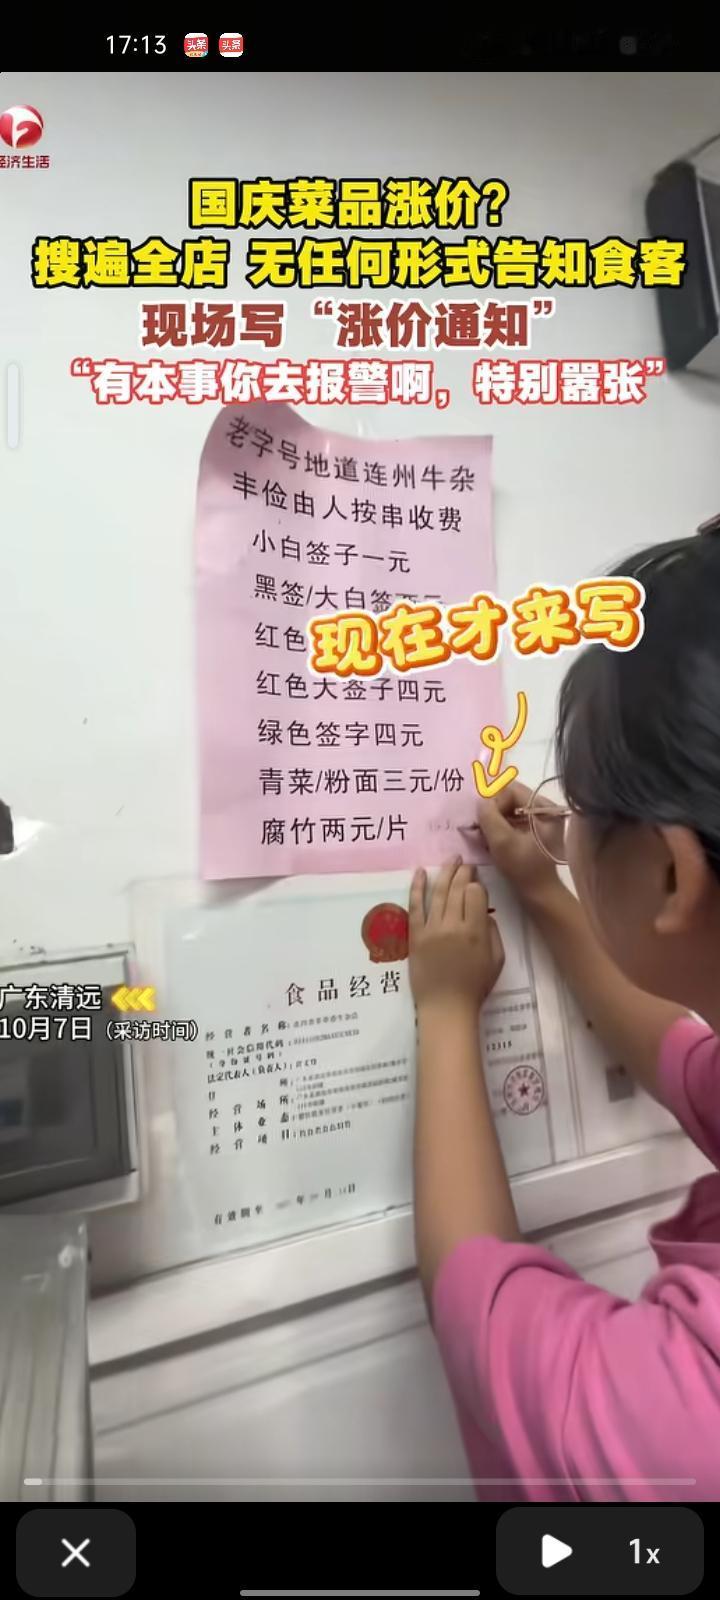 17:13
头条
头条
经济生活
国庆菜品涨价？
搜遍全店 无任何形式告知食客
现场写“涨价通知”
“有本事你去报警啊，特别嚣张”
老字号地道连州牛杂
丰俭由人按串收费
小白签子一元
黑签/大白签
现在才来写
红色
红色大签子四元
绿色签字四元
青菜/粉面三元/份
腐竹两元/片
食品经营
广东清远
10月7日（采访时间）
经营者名称:
统一社会信用代码
(身份证号码):
法定代表人(负责人):
住所:
经营场所:
主体业态:
经营项目:
12315
有效期至 年 月 日
1x